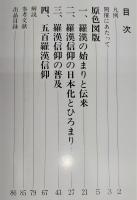 目次
凡例 2
開催にあたって 3
原色図版 5
一、羅漢の始まりと伝来 21
二、羅漢信仰の日本化とひろまり 27
三、羅漢信仰の普及 41
四、五百羅漢信仰 67
解説 79
参考文献 85
出品目録 86